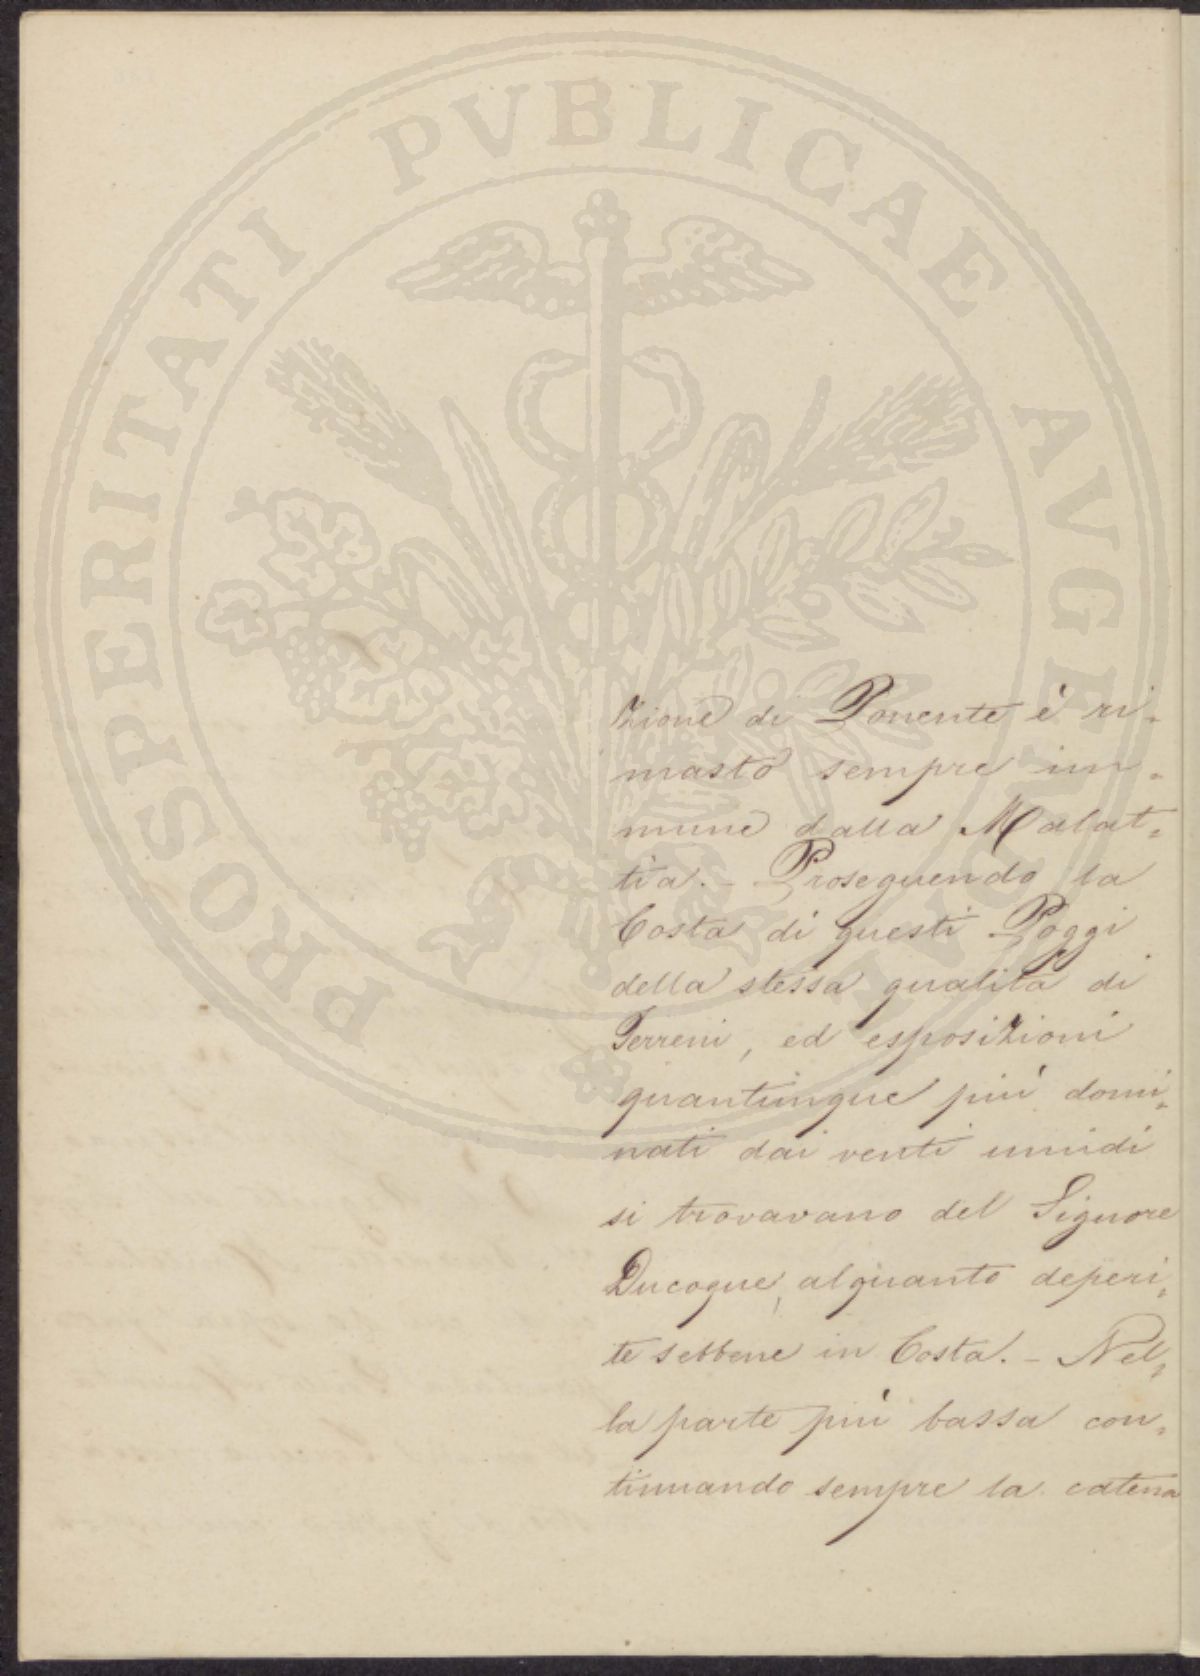 PROSPERITATI PVBLICAE AVGENDAE
zione di Ponente è ri-
masto sempre im-
mune dalla Malat-
tia. - Proseguendo la
Costa di questi Poggi
della stessa qualità di
Terreni, ed esposizioni
quantunque più domi-
nati dai venti umidi
si trovavano del Signore
Ducoque, alquanto deperi-
te sebbene in Costa. - Nel-
la parte più bassa con-
tinuando sempre la catena